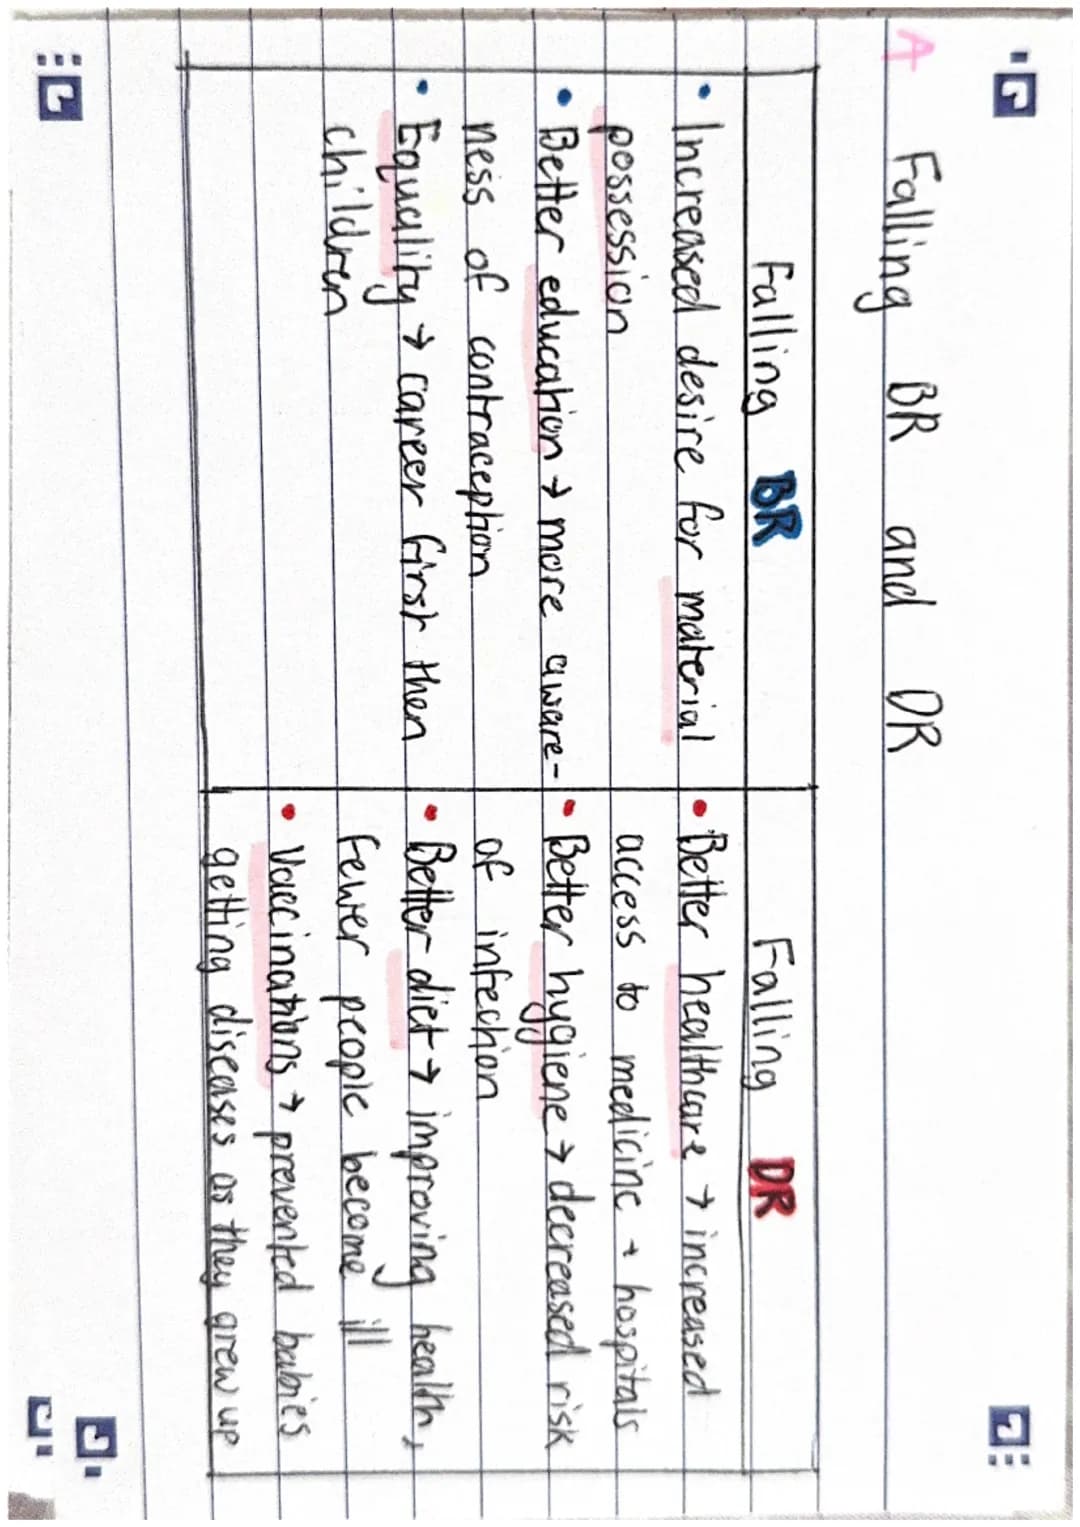 A
Falling BR and DR
Falling BR
• Increased desire for material
possession
• Better education → more aware-
ness of contraception
• Equality → career first then
children
Falling DR
• Better healthcare → increased
access to medicine + hospitals
• Better hygiene → decreased risk
of infection
• Better diet → improving health,
fewer people become ill
• Vaccinations → prevented babies
getting diseases as they grew up